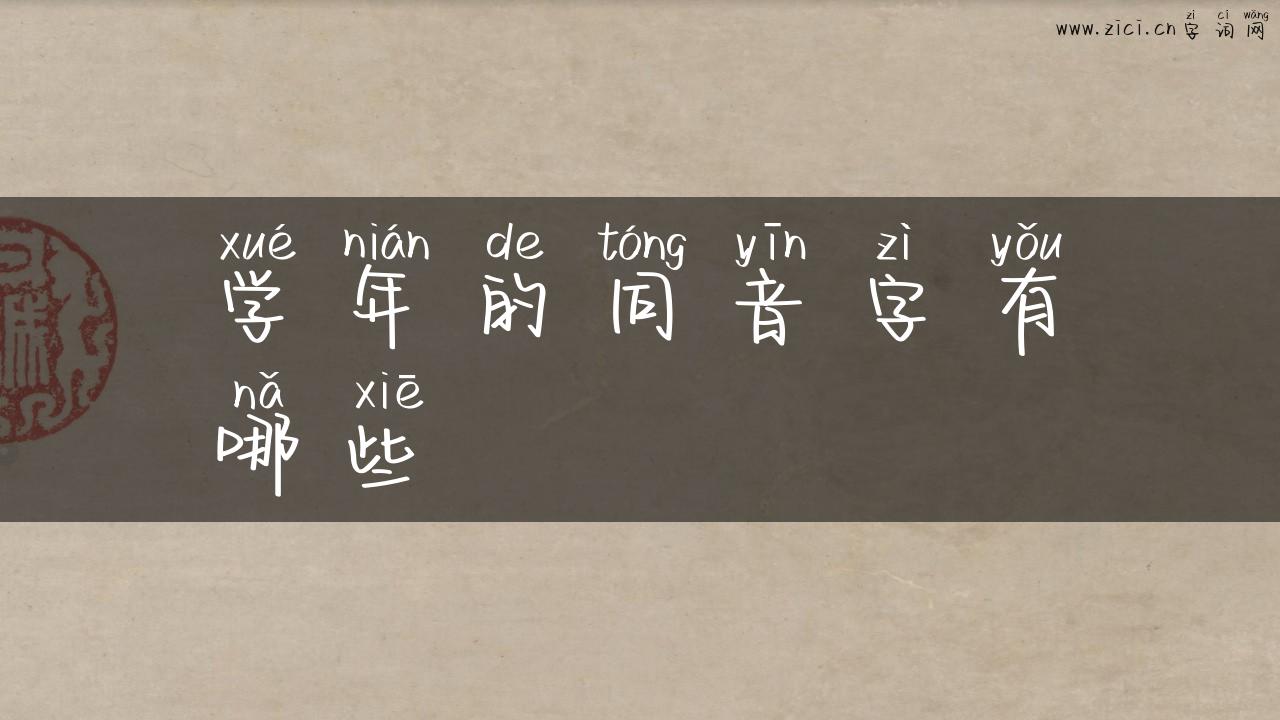 zì cí wǎng
www.zici.cn 字词网
xué nián de tóng yīn zì yǒu
学年的同音字有
nǎ xiē
哪些